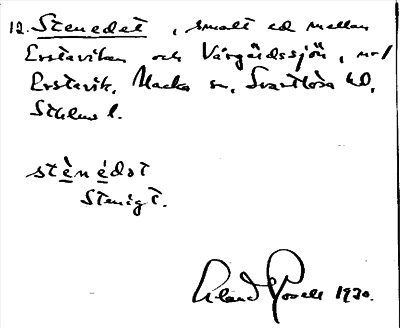 12. Stenedet, smalt ed mellan
Erstaviken och Vårgärdssjön, nv/
Erstavik, Nacka sn, Svartlösa hd,
Sthlms l.
stènédət
Stenigt.
Erland Rosell 1930.